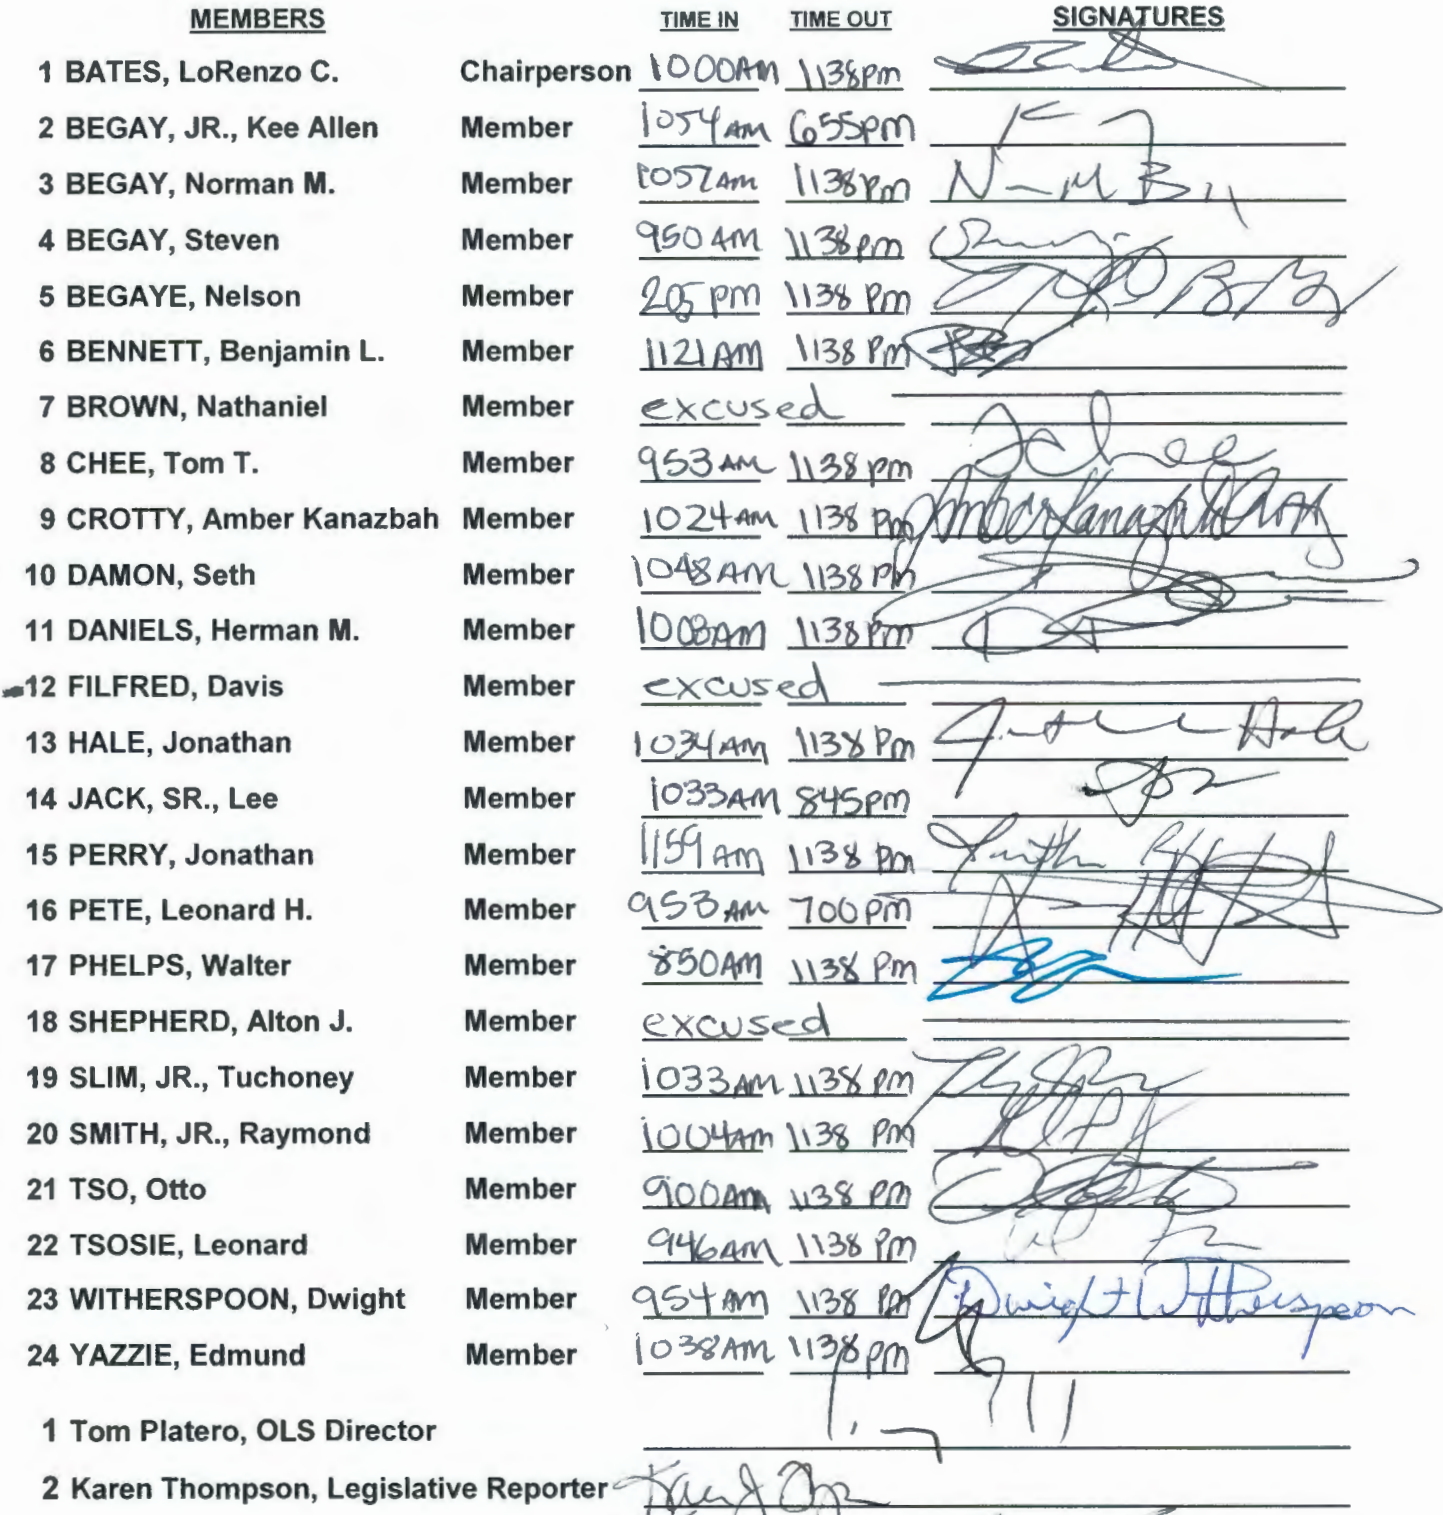 MEMBERS TIME IN TIME OUT SIGNATURES
1 BATES, LoRenzo C. Chairperson 1000AM 1138pm
2 BEGAY, JR., Kee Allen Member 1054AM 655pm
3 BEGAY, Norman M. Member 1057AM 1138pm
4 BEGAY, Steven Member 950AM 1138pm
5 BEGAYE, Nelson Member 205pm 1138 Pm
6 BENNETT, Benjamin L. Member 1121AM 1138 Pm
7 BROWN, Nathaniel Member excused
8 CHEE, Tom T. Member 953AM 1138pm TChee
9 CROTTY, Amber Kanazbah Member 1024AM 1138 pm Amber Kanazbah Crotty
10 DAMON, Seth Member 1048AM 1138 pm
11 DANIELS, Herman M. Member 1008AM 1138pm
12 FILFRED, Davis Member excused
13 HALE, Jonathan Member 1034AM 1138 Pm Hale
14 JACK, SR., Lee Member 1033AM 845pm
15 PERRY, Jonathan Member 1159AM 1138 pm
16 PETE, Leonard H. Member 953AM 700pm
17 PHELPS, Walter Member 850AM 1138 Pm
18 SHEPHERD, Alton J. Member excused
19 SLIM, JR., Tuchoney Member 1033AM 1138pm
20 SMITH, JR., Raymond Member 1004AM 1138 Pm
21 TSO, Otto Member 900AM 1138 pm
22 TSOSIE, Leonard Member 946AM 1138 Pm
23 WITHERSPOON, Dwight Member 954AM 1138 PM Dwight Witherspoon
24 YAZZIE, Edmund Member 1038AM 1138pm
1 Tom Platero, OLS Director
2 Karen Thompson, Legislative Reporter